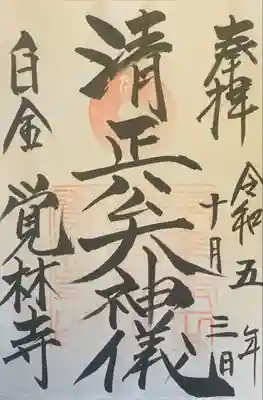 奉拝
令和五年
十月三日
清正公大神儀
白金
覚林寺